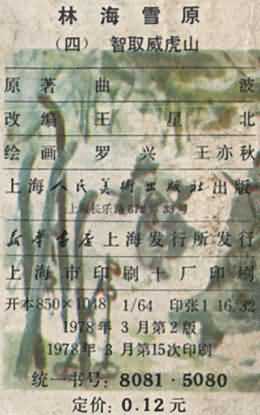 林海雪原
（四） 智取威虎山
原著 曲波
改编 王星北
绘画 罗兴 王亦秋
上海人民美术出版社出版
上海长乐路672弄33号
新华书店上海发行所发行
上海市印刷十厂印刷
开本850×1048 1/64 印张1 16/32
1978年3月第2版
1978年3月第15次印刷
统一书号：8081·5080
定价：0.12元